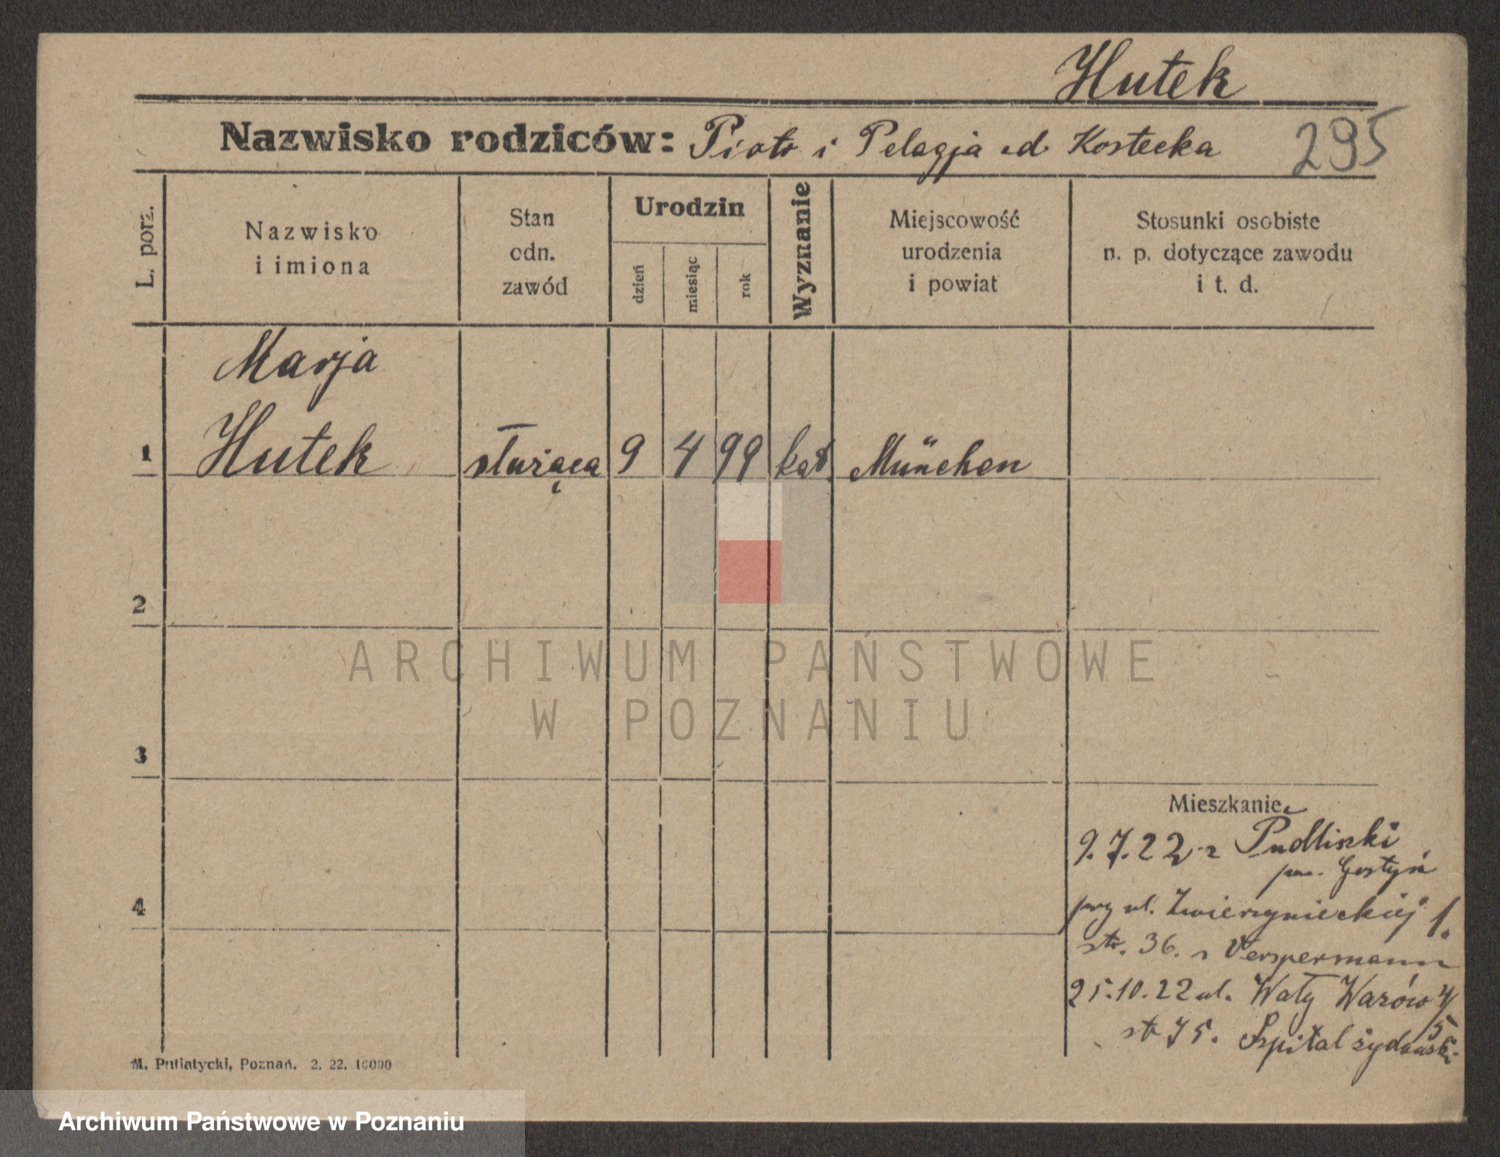 Hutek
Nazwisko rodziców: Piotr i Pelagja .d. Kostecka
295
L. porz.
Nazwisko
i imiona
Stan
odn.
zawód
Urodzin
dzień
miesiąc
rok
Wyznanie
Miejscowość
urodzenia
i powiat
Stosunki osobiste
n. p. dotyczące zawodu
i t. d.
Marja
1 Hutek służąca 9 4 99 kat. München
2
ARCHIWUM PAŃSTWOWE
W POZNANIU
3
Mieszkanie
9.7.22 z Pudliszki
pow. Gostyń
4
przy ul. Zwierzynieckiej 1.
str. 36. Verspermann
25.10.22 ul. Wały Wazów 4/5
str 75. Szpital żydowski
M. Putiatycki, Poznań. 2. 22. 16000
Archiwum Państwowe w Poznaniu